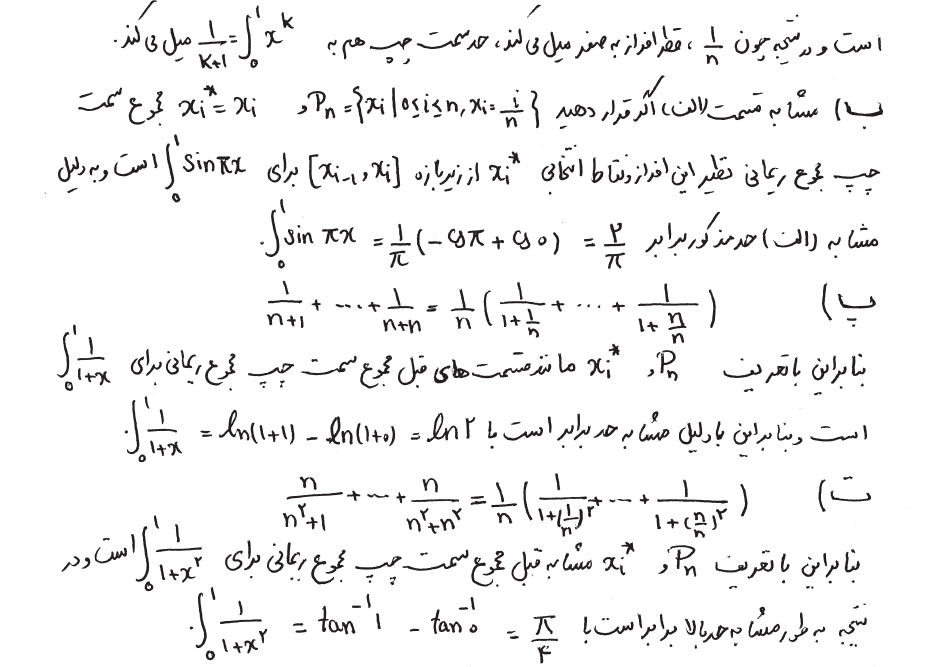 است و در نتیجه چون 1/n ، قطر افراز به صفر میل می‌کند، حد سمت چپ هم به ∫₀¹ x^k = 1/(k+1) میل می‌کند.
ب) مشابه قسمت (الف)، اگر قرار دهید P_n = {x_i | 0≤i≤n, x_i = i/n} و x_i* = x_i مجموع سمت
چپ مجموع ریمانی نظیر این افراز و نقاط انتخابی x_i* از زیربازه [x_{i-1}, x_i] برای ∫₀¹ sin πx است و به دلیل
مشابه (الف) حد مذکور برابر ∫₀¹ sin πx = 1/π (-cos π + cos 0) = ۲/π.
پ) 1/(n+1) + ... + 1/(n+n) = 1/n ( 1/(1+1/n) + ... + 1/(1+n/n) )
بنابراین با تعریف P_n و x_i* مانند قسمت‌های قبل مجموع سمت چپ مجموع ریمانی برای ∫₀¹ 1/(1+x)
است و بنابراین با دلیل مشابه حد برابر است با ∫₀¹ 1/(1+x) = ln(1+1) - ln(1+0) = ln ۲.
ت) n/(n^۲+1) + ... + n/(n^۲+n^۲) = 1/n ( 1/(1+(1/n)^۲) + ... + 1/(1+(n/n)^۲) )
بنابراین با تعریف P_n و x_i* مشابه قبل مجموع سمت چپ مجموع ریمانی برای ∫₀¹ 1/(1+x^۲) است و در
نتیجه به طور مشابه حد بالا برابر است با ∫₀¹ 1/(1+x^۲) = tan⁻¹ 1 - tan⁻¹ 0 = π/۴.